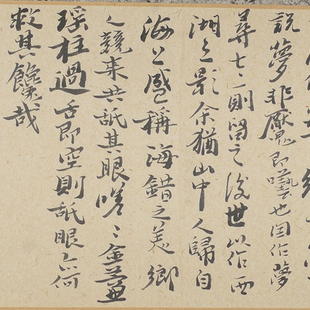 說夢非魘即囈也因作夢
尋七十二則留之後世以作西
湖之影余猶山中人歸自
海上盛稱海錯之美鄉
人競來共舐其眼嗟〻金虀
瑤柱過舌即空則舐眼亦何
救其饞哉